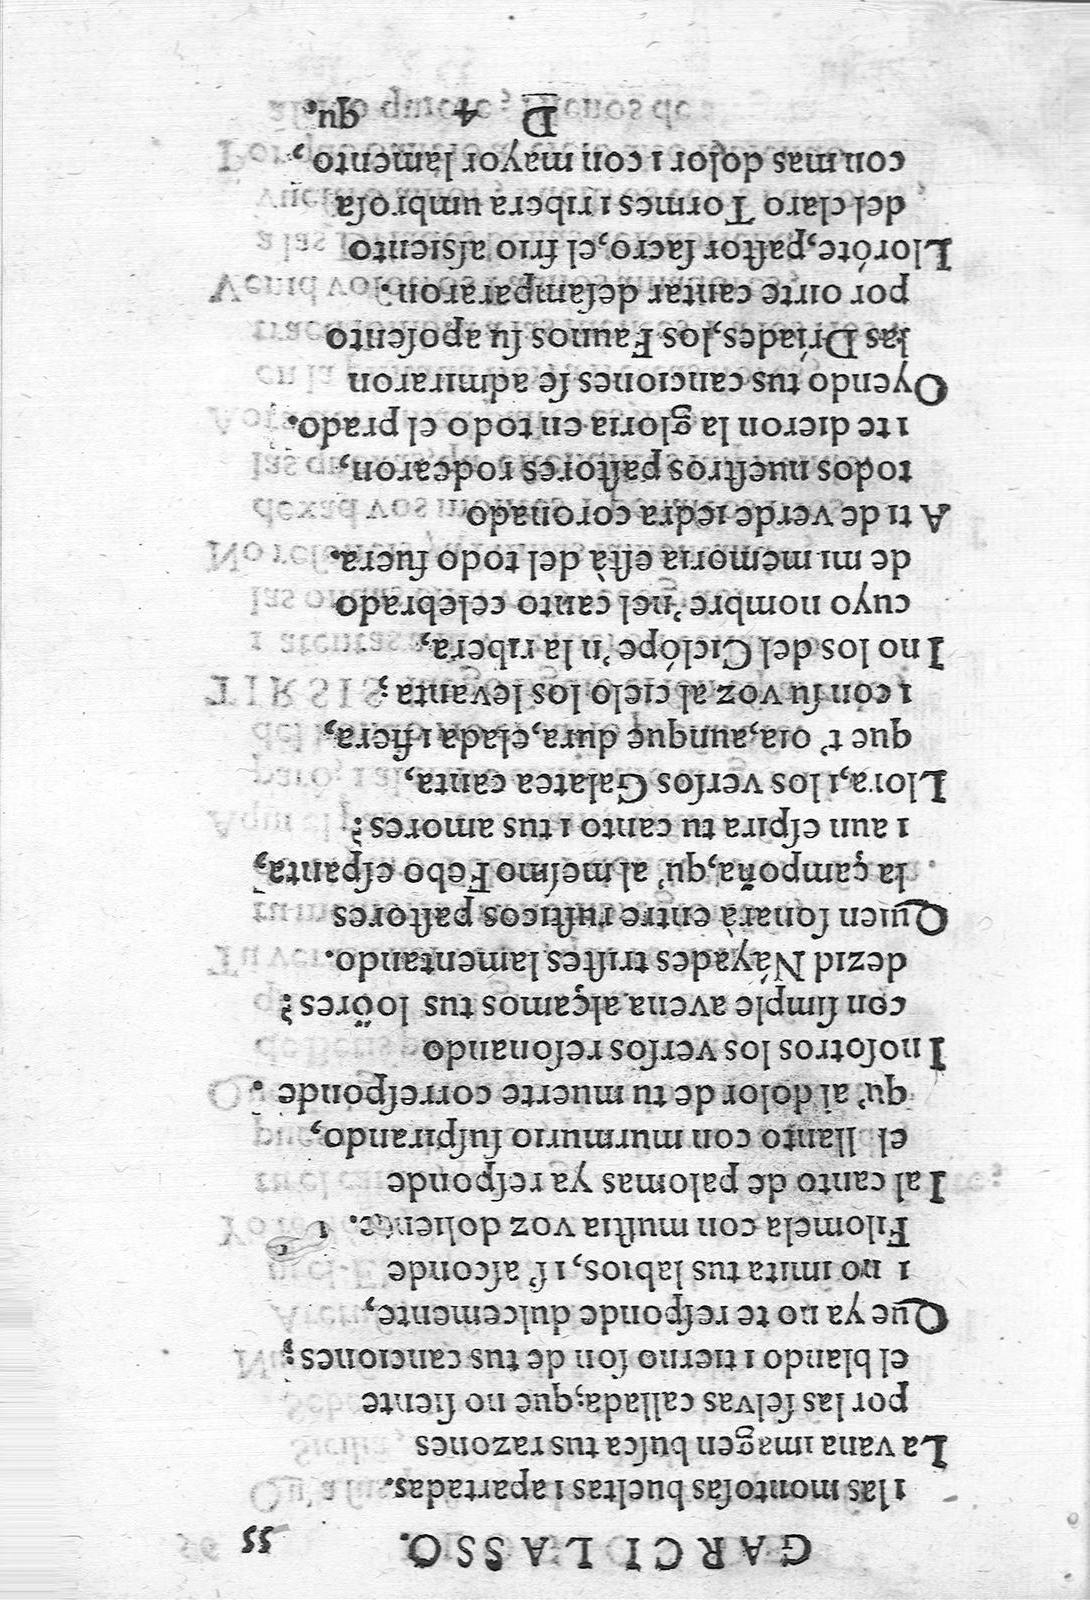 GARCI LASSO. 55
ı las montoſas bueltas ı apartadas.
La vana imagen buſca tus razones
por las ſelvas callada; que no ſiente
el blando ı tierno ſon de tus canciones;
Que ya no te reſponde dulcemente,
ı no imita tus labios, ı ſ' aſconde
Filomela con muſtia voz doliente.
I al canto de palomas ya reſponde
el llanto con murmurio ſuſpirando,
qu' al dolor de tu muerte correſponde.
I noſotros los verſos reſonando
con ſimple avena alçamos tus loöres?
dezid Náyades triſtes lamentando.
Quien ſonarà entre ruſticos paſtores
la çampoña, qu' al meſmo Febo eſpanta,
ı aun eſpira tu canto ı tus amores?
Llora, ı los verſos Galatea canta,
que t' oìa, aunque dura, elada ı fiera,
ı con ſu voz al cielo los levanta;
I no los del Ciclópe 'n la ribera,
cuyo nombre 'nel canto celebrado
de mi memoria eſtà del todo fuera.
A ti de verde iedra coronado
todos nueſtros paſtores rodearon,
ı te dieron la gloria en todo el prado.
Oyendo tus canciones ſe admiraron
las Drìades, los Faunos ſu apoſento
por oirte cantar deſampararon.
Lloróte, paſtor ſacro, el frio aſsiento
del claro Tormes ı ribera umbroſa
con mas dolor ı con mayor lamento,
D 4 qu.